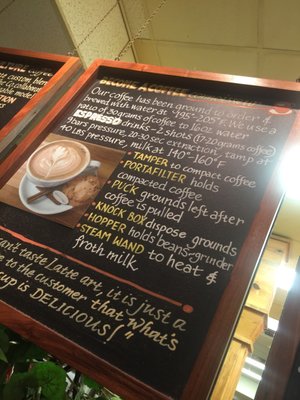 Our coffee has been ground to order &
brewed with water at 195°-205°. We use a
ratio of 30 grams of coffee to 16oz water
ESPRESSO drinks - 2 shots (17-20 grams coffee)
9bars pressure, 20-30 sec extraction, tamp at
40 LBS pressure, milk at 140°-160°F
• TAMPER to compact coffee
• PORTAFILTER holds
compacted coffee
• PUCK grounds left after
coffee is pulled
• KNOCK BOX dispose grounds
• HOPPER holds beans-grinder
• STEAM WAND to heat &
froth milk
can't taste Latte art, it is just a
to the customer that what's
cup is DELICIOUS!"